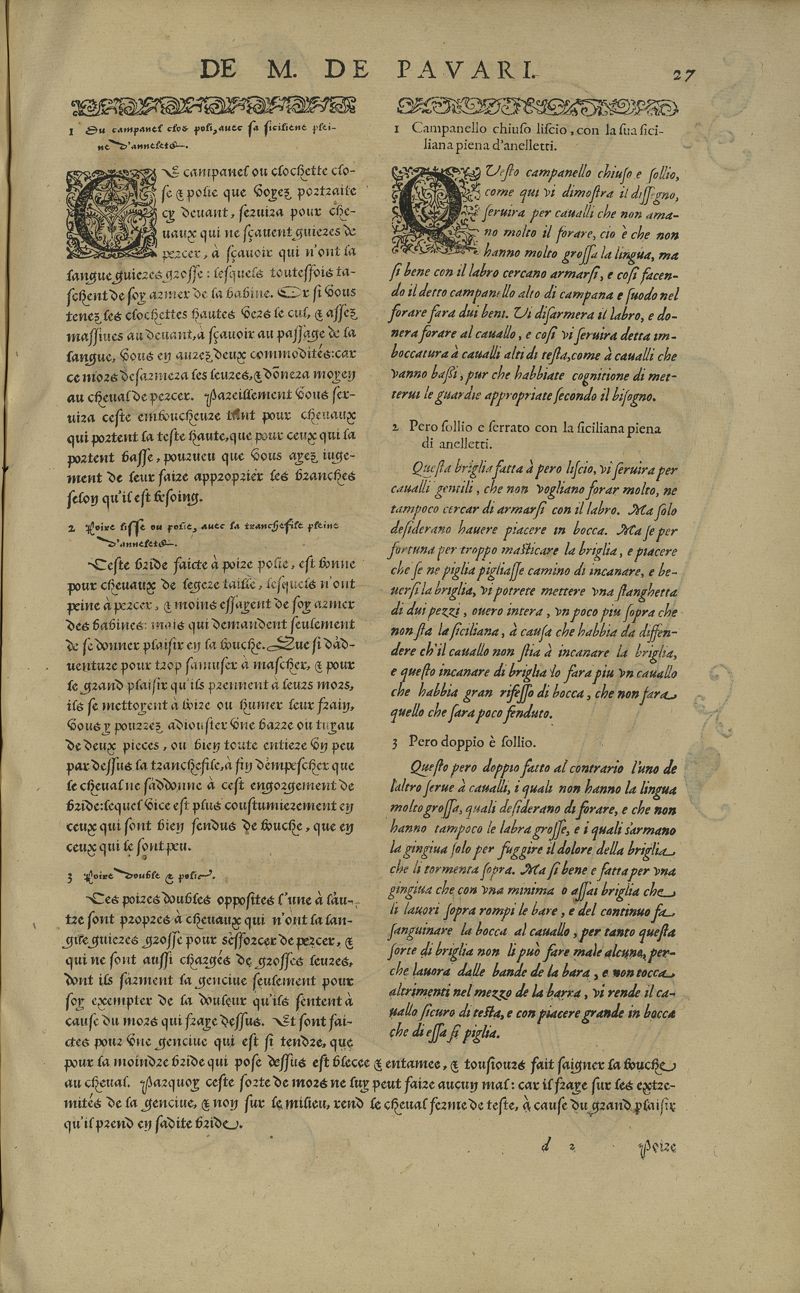 DE M. DE PAVARI.
27
1 Du campanel clos poli, avec sa siciliene plei-
ne d'annelets.
CE campanel ou clochette clo-
se & polie que voyez portraite
cy devant, servira pour che-
vaux qui ne sçauent guieres de
percer, à sçauoir qui n'ont la
langue guieres grosse: lesquels toutesfois ta-
schent de soy armer de la babine. Or si vous
tenez les clochettes hautes vers le cul, & assez
massiues au deuant, à sçauoir au passage de la
langue, vous en aurez deux commodités: car
ce mors desarmera les leures, & dõnera moyen
au cheual de percer. Pareillement vous ser-
uira ceste emboucheure tant pour cheuaux
qui portent la teste haute, que pour ceux qui la
portent basse, pourueu que vous ayez iuge-
ment de leur faire approprier les branches
selon qu'il est besoing.
2 Poire lisse ou polie, auec la tranchefile pleine
d'annelets.
Ceste bride faicte à poire polie, est bonne
pour cheuaux de legere taille, lesquels n'ont
peine à percer, & moins essayent de soy armer
des babines: mais qui demandent seulement
de se donner plaisir en la bouche. Que si d'ad-
uenture pour trop s'amuser à mascher, & pour
le grand plaisir qu'ils prennent à leurs mors,
ils se mettoyent à boire ou humer leur frain,
vous y pourrez adiouster vne barre ou tuyau
de deux pieces, ou bien toute entiere vn peu
par dessus la tranchefile, à fin d'empescher que
le cheual ne s'addonne à cest engorgement de
bride: lequel vice est plus coustumierement en
ceux qui sont bien fendus de bouche, que en
ceux qui le sont peu.
3 Poire double & polie.
Ces poires doubles opposites l'une à l'au-
tre sont propres à cheuaux qui n'ont la lan-
gue guieres grosse pour s'efforcer de percer, &
qui ne sont aussi chargés de grosses leures,
dont ils s'arment la genciue seulement pour
soy exempter de la douleur qu'ils sentent à
cause du mors qui fraye dessus. Et sont fai-
ctes pour vne genciue qui est si tendre, que
pour la moindre bride qui pose dessus est blecee & entamee, & tousiours fait saigner la bouche
au cheual. Parquoy ceste sorte de mors ne luy peut faire aucun mal: car il fraye sur les extre-
mités de la genciue, & non sur le milieu, rend le cheual ferme de teste, à cause du grand plaisir
qu'il prend en sadite bride.
1 Campanello chiuso liscio, con la sua sici-
liana piena d'anelletti.
QVesto campanello chiuso e sollio,
come qui vi dimostra il dissegno,
seruira per caualli che non ama-
no molto il forare, cio è che non
hanno molto grossa la lingua, ma
si bene con il labro cercano armarsi, e cosi facen-
do il detto campanello alto di campana e suodo nel
forare fara dui beni. Vi disarmera il labro, e do-
nera forare al cauallo, e cosi vi seruira detta im-
boccatura à caualli alti di testa, come à caualli che
vanno bassi, pur che habbiate cognitione di met-
terui le guardie appropriate secondo il bisogno.
2 Pero sollio e serrato con la siciliana piena
di anelletti.
Questa briglia fatta à pero liscio, vi seruira per
caualli gentili, che non vogliano forar molto, ne
tampoco cercar di armarsi con il labro. Ma solo
desiderano hauere piacere in bocca. Ma se per
fortuna per troppo masticare la briglia, e piacere
che se ne piglia pigliasse camino di incanare, e be-
uersi la briglia, vi potrete mettere vna stanghetta
di dui pezzi, ouero intera, vn poco piu sopra che
non sta la siciliana, à causa che habbia da diffen-
dere ch'il cauallo non stia à incanare la briglia,
e questo incanare di briglia lo fara piu vn cauallo
che habbia gran rifesso di bocca, che non fara
quello che sara poco fenduto.
3 Pero doppio è sollio.
Questo pero doppio fatto al contrario l'uno de
l'altro serue à caualli, i quali non hanno la lingua
molto grossa, quali desiderano di forare, e che non
hanno tampoco le labra grosse, e i quali s'armano
la gingiua solo per fuggire il dolore della briglia
che li tormenta sopra. Ma si bene e fatta per vna
gingiua che con vna minima o assai briglia che
li lauori sopra rompi le bare, e del continuo fa
sanguinare la bocca al cauallo, per tanto questa
sorte di briglia non li può fare male alcuno, per-
che lauora dalle bande de la bara, e non tocca
altrimenti nel mezzo de la barra, vi rende il ca-
uallo sicuro di testa, e con piacere grande in bocca
che di essa si piglia.
d 2
Poire